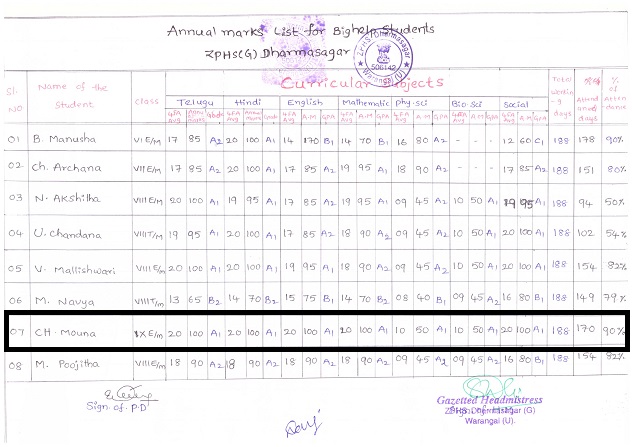 Annual marks List for Bighelp Students
ZPHS(G) Dharmasagar
ZPHS Dharmasagar
506142
Warangal (U)
Curricular Subjects
Sl. NO Name of the Student Class Telugu Hindi English Mathematic phy.sci Bio.Sci Social Total Working days % of
01 B. Manusha VII E/m 17 85 A2 20 100 A1 14 170 B1 14 70 B1 16 80 A2 - - - 12 60 C1 188 178 90%
02 Ch. Archana VII E/m 17 85 A2 20 100 A1 17 85 A2 19 95 A1 18 90 A2 - - - 17 85 A2 188 151 80%
03 N. Akshitha VIII E/m 20 100 A1 19 95 A1 17 85 A2 19 95 A1 09 45 A2 10 50 A1 19 95 A1 188 94 50%
04 U. Chandana VIII T/m 19 95 A1 20 100 A1 17 85 A2 18 90 A2 09 45 A2 10 50 A1 20 100 A1 188 102 54%
05 V. Mallishwari VIII E/m 20 100 A1 20 100 A1 19 95 A1 18 90 A2 09 45 A2 10 50 A1 20 100 A1 188 154 82%
06 M. Navya VIII T/m 13 65 B2 14 70 B2 15 75 B1 14 70 B2 08 40 B1 09 45 A2 16 80 B1 188 149 79%
07 CH. Mouna IX E/m 20 100 A1 20 100 A1 20 100 A1 20 100 A1 10 50 A1 10 50 A1 20 100 A1 188 170 90%
08 M. Poojitha VIII E/m 18 90 A2 18 90 A2 18 90 A2 18 90 A2 09 45 A2 09 45 A2 16 80 B1 188 154 82%
Sign. of. P.D
Gazetted Headmistress
ZPHS Dharmasagar (G)
Warangal (U).